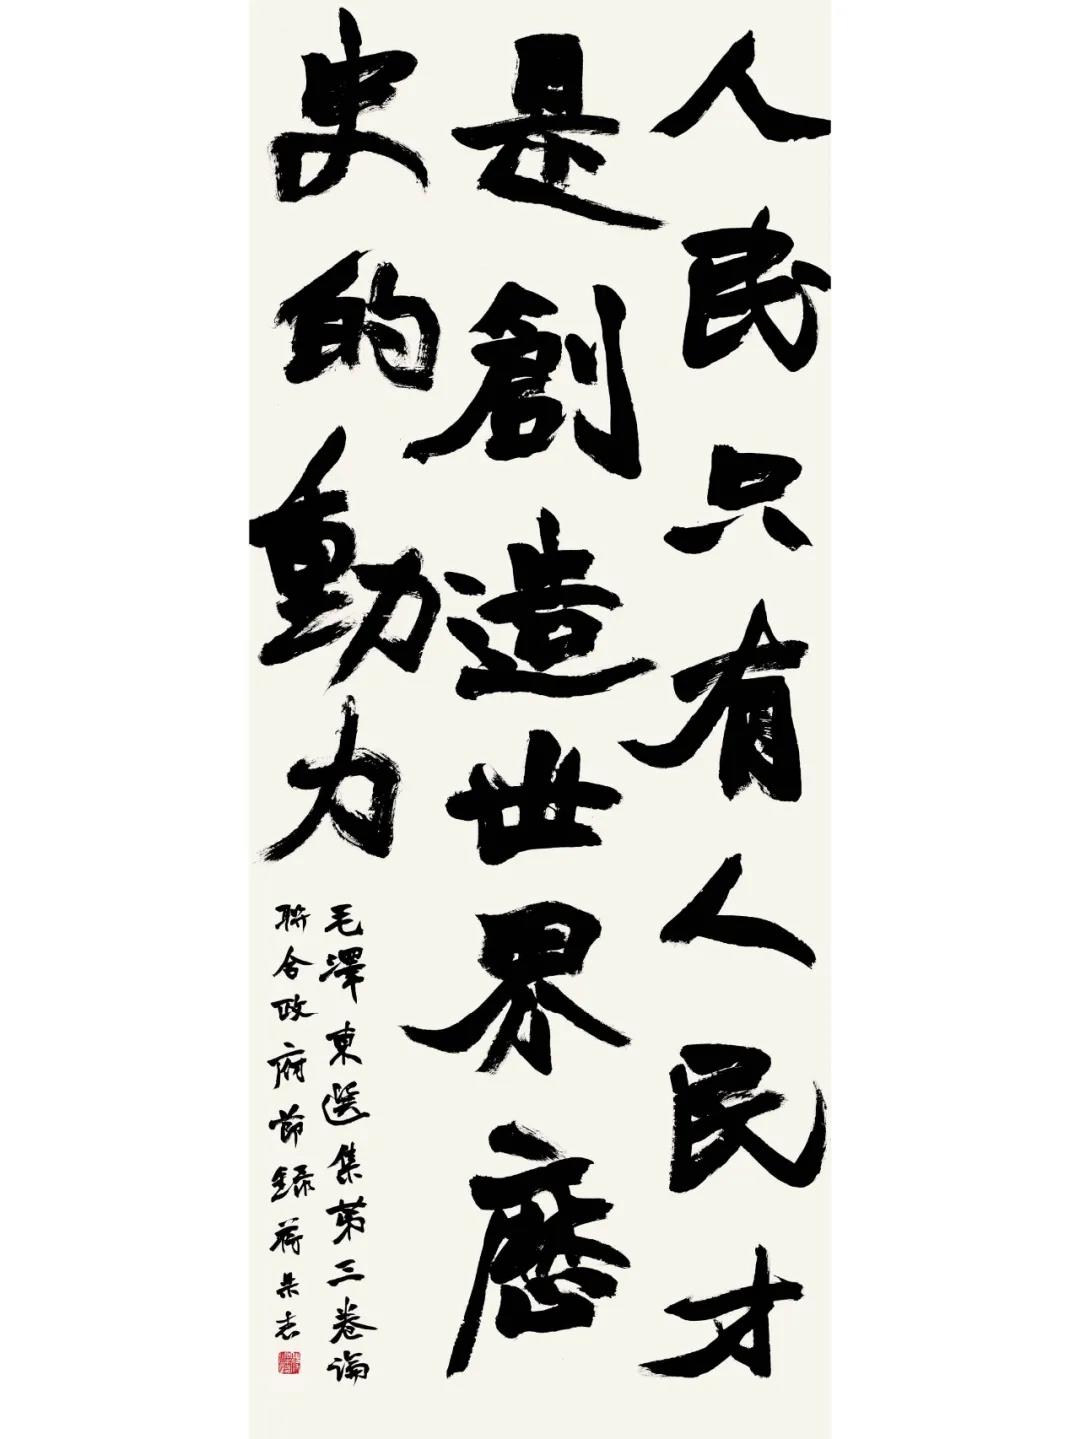 人民只有人民才
是創造世界歷
史的動力
毛澤東選集第三卷論
聯合政府節錄蔣